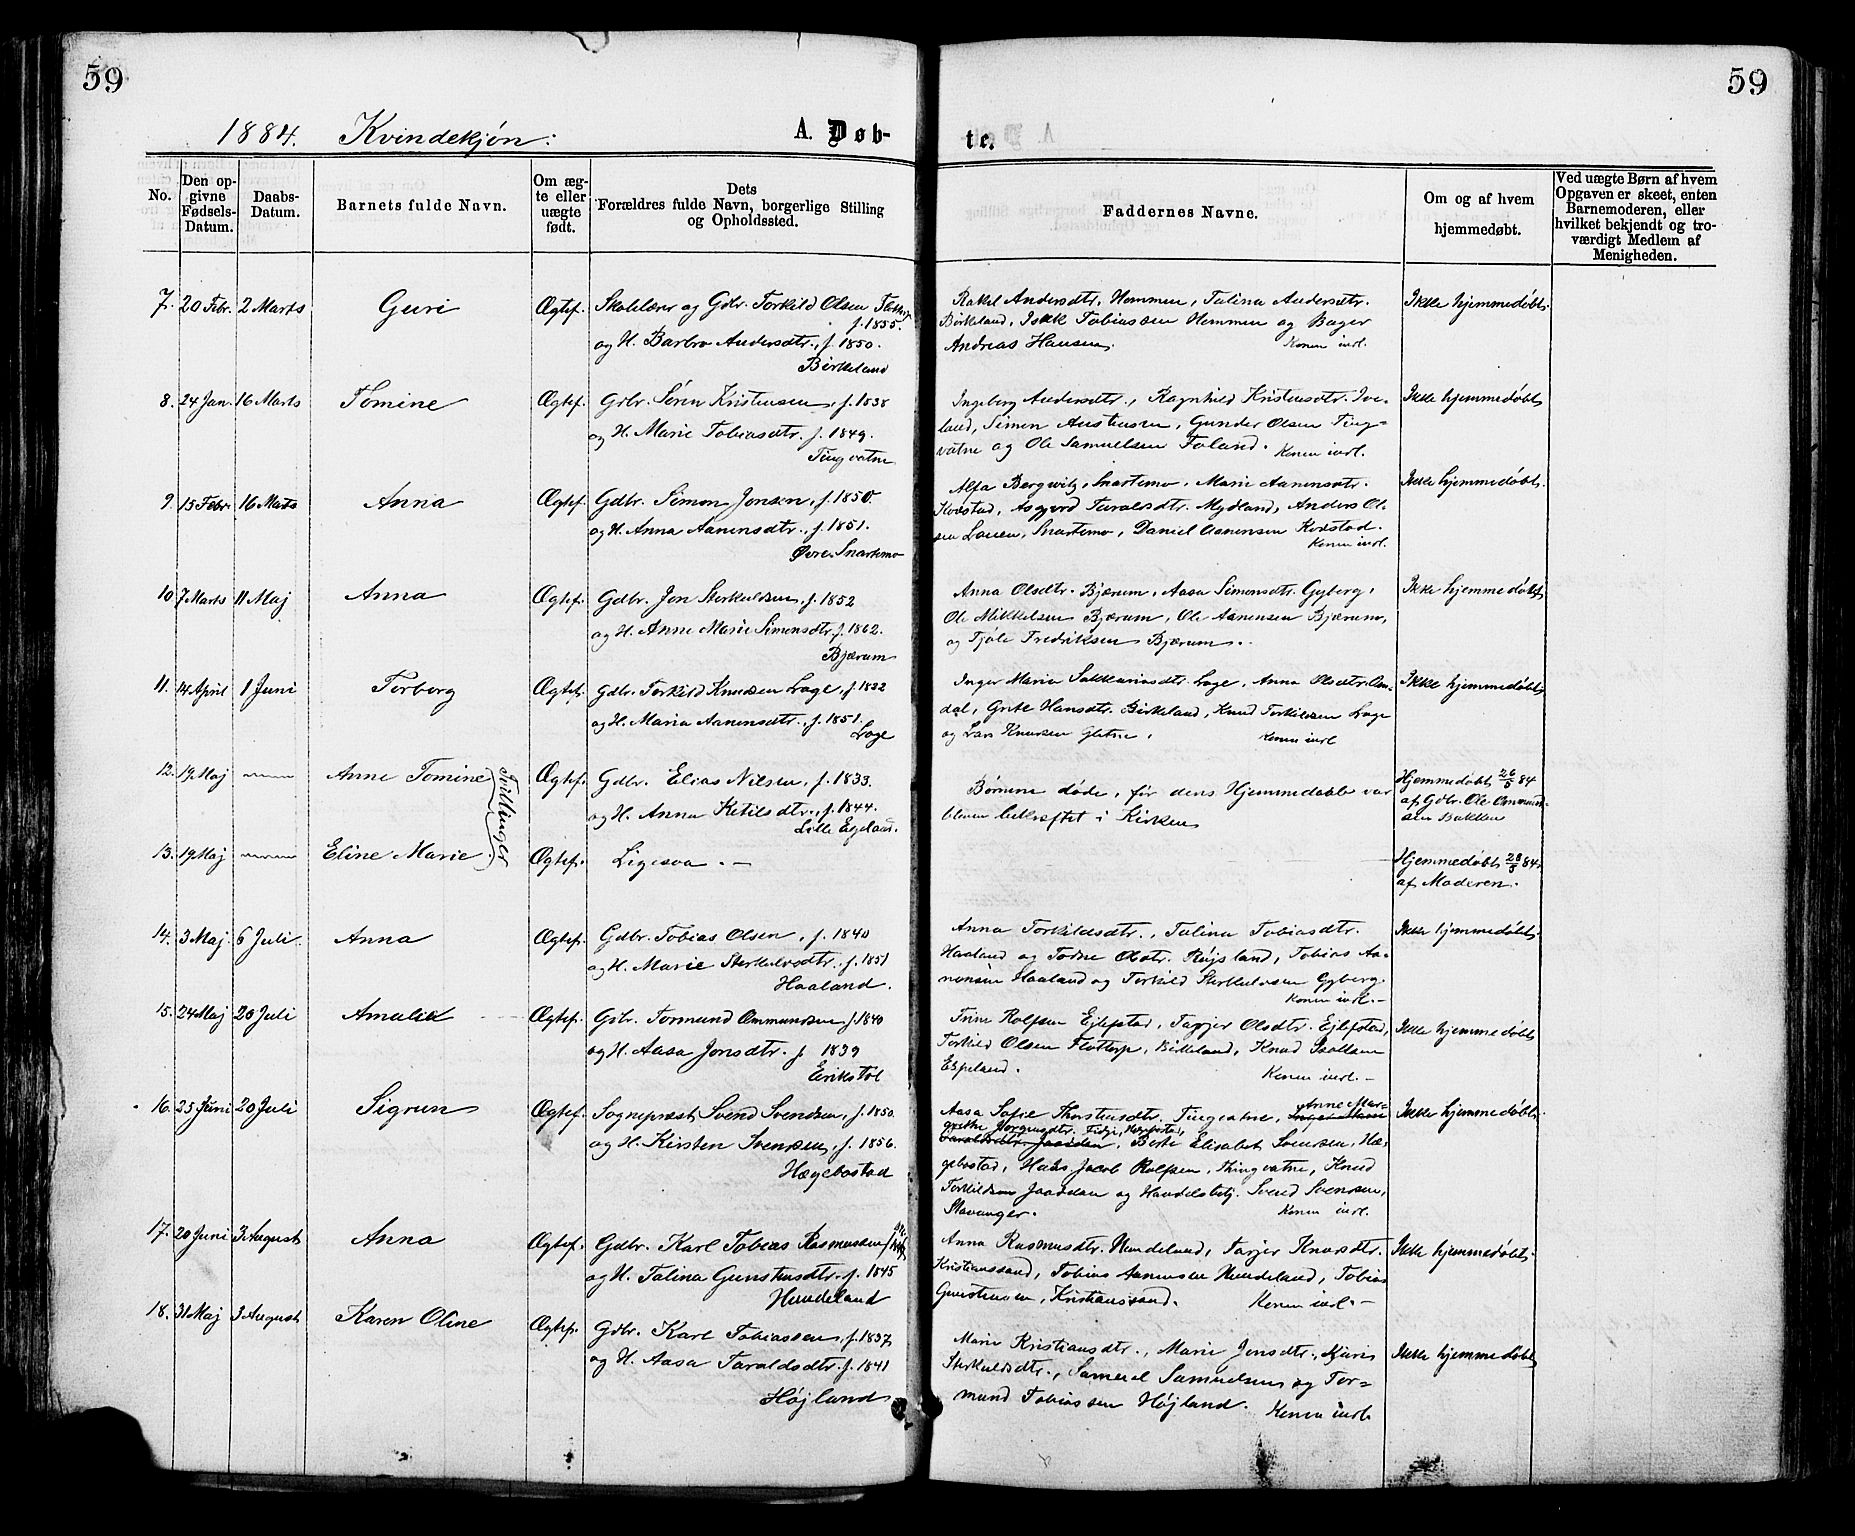 59
59
1884. Kvindekjøn:
A. Døb-
te.
No.
Den op-
givne
Fødsels-
Datum.
Daabs-
Datum.
Barnets fulde Navn.
Om æg-
te eller
uægte
født.
Dets
Forældres fulde Navn, borgerlige Stilling
og Opholdssted.
Faddernes Navne.
Om og af hvem
hjemmedøbt.
Ved uægte Børn af hvem
Opgaven er skeet, enten
Barnemoderen, eller
hvilket bekjendt og tro-
værdigt Medlem af
Menigheden.
7. 20 Febr. 2 Marts Guri Ægtef. Skolelærer og Gdbr. Torkild Olsen
f. 1855.
og H. Barbro Andersdtr., f. 1850.
Birkeland
Rakel Andersdtr. Hommen, Talina Andersdtr.
Birkeland, Isak Tobiassen Hommen og Bager
Andreas Hansen. Konen indl.
Ikke hjemmedøbt.
8. 24 Jan. 16 Marts Tomine Ægtef. Gdbr. Søren Kristensen, f. 1838
og H. Marie Tobiasdtr. f. 1849.
Tingvatne
Ingeborg Andersdtr., Ragnhild Kristensdtr.
land, Simon Austensen, Gunder Olsen Ting-
vatne og Ole Samuelsen Faland. Konen indl.
Ikke hjemmedøbt
9. 15 Febr. 16 Marts Anna Ægtef. Gdbr. Simon Jonsen, f. 1850.
og H. Anna Aanensdtr., f. 1851.
Øvre Snartemo
Alfa Bergwitz, Snartemo, Marie Aanensdtr.
Kvestad, Asgjerd Taraldsdtr. Mydland, Anders Ol-
sen Lauen, Snartemo, Daniel Aanensen Kvestad.
Konen indl.
Ikke hjemmedøbt.
10. 7 Marts 11 Maj Anna Ægtef. Gdbr. Jon Sterkuldsen, f. 1852
og H. Anne Marie Simensdtr. f. 1862.
Bjærum
Anna Olsdtr. Bjærum, Aasa Simensdtr. Gyberg,
Ole Mikkelsen Bjærum, Ole Aanensen Bjærum,
og Tjøle Fredriksen Bjærum.
Ikke hjemmedøbt
11. 14 April 1 Juni Torborg Ægtef. Gdbr. Torkild Knudsen Lage, f. 1822
og H. Maria Aanensdtr., f. 1851.
Lage
Inger Marie Sakkariasdtr. Lage, Anna Olsdtr. Om-
dal, Grete Hansdtr. Birkeland, Knud Torkildsen Lage
og Lars Knudsen Konen indl
Ikke hjemmedøbt
12. 19 Maj Anne Tomine Tvillinger Ægtef. Gdbr. Elias Nilsen, f. 1833.
og H. Anna Ketilsdtr., f. 1844.
Lille Egeland.
Børnene døde, før deres Hjemmedaab var
bleven bekræftet i Kirken
Hjemmedøbt 26/5 84
af Gdbr. Ole Ommund-
sen Bakken
13. 19 Maj Eline Marie Ægtef. Ligesaa. –
Hjemmedøbt 26/5 84
af Moderen.
14. 3 Maj 6 Juli. Anna Ægtef. Gdbr. Tobias Olsen, f. 1840
og H. Marie Sterkulsdtr. f. 1851
Haaland.
Anna Torkildsdtr., Talina Tobiasdtr.
Haaland og Todne Olsdtr. Røjsland, Tobias Aa-
nensen Haaland og Torkild Sterkuldsen Gyberg.
Konen indl. –
Ikke hjemmedøbt.
15. 24 Maj 20 Juli Amalie Ægtef. Gdbr. Tormund Ommundsen f. 1840
og H. Aasa Jonsdtr. f. 1839
Erikstøl
Trine Rolfsen Ejlefstad, Tarjer Olsdtr. Ejlefstad,
Torkild Olsen Flottorp, Birkeland, Knud
Espeland. Konen indl. –
Ikke hjemmedøbt
16. 25 Juni 20 Juli Sigrun Ægtef. Sognepræst Svend Svendsen, f. 1850.
og H. Kirsten Svendsen, f. 1856.
Hægebostad
Aasa Sofie Torstensdtr. Tingvatne, Anne Mar-
grethe Jørgensdtr. Berte Elisabet Svendsen, Hæ-
gebostad, Hans Jacob Rolfsen, Thingvatne, Knud
Torkildsen Jaadden og Handelsbetj. Svend Svendsen,
Stavanger. Konen indl.
Ikke hjemmedøbt.
17. 20 Juni 3 August Anna Ægtef. Gdbr. Karl Tobias Rasmussen
og H. Talina Gunstensdtr. f. 1845
Hundeland
Anna Rasmusdtr. Hundeland, Tarjer Knudsdtr.
Kristianssand, Tobias Aanensen Hundeland, Tobias
Gunstensen, Kristianssand. Konen indl. –
Ikke hjemmedøbt.
18. 31 Maj 3 August Karen Oline Ægtef. Gdbr. Karl Tobiassen, f. 1837
og H. Aasa Taraldsdtr. f. 1841
Højland
Marie Kristiansdtr., Marie Jonsdtr.,
Sterkuldsdtr., Samuel Samuelsen og Tor-
mund Tobiassen Højland. Konen indl.
Ikke hjemmedøbt